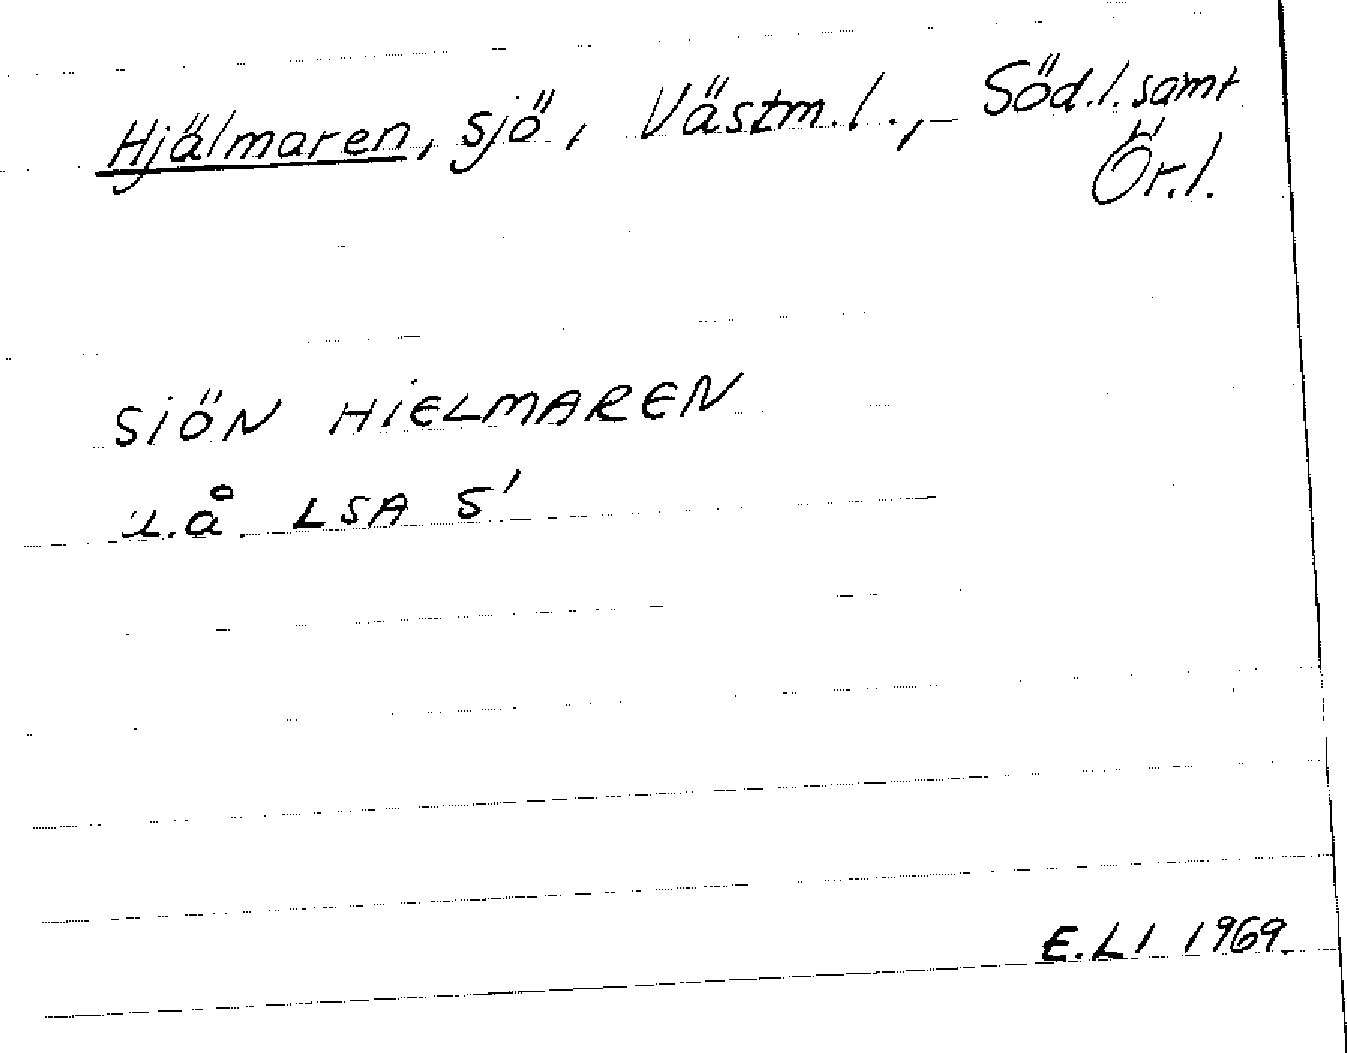 Hjälmaren, sjö, Västm.l., Söd.l. samt
Ör.l.
SIÖN HIELMAREN
u.å. LSA S'
E.LI 1969.